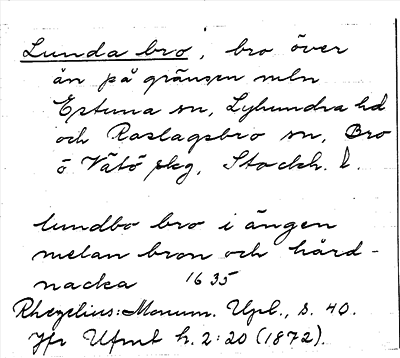 Lunda bro, bro över
ån på gränsen mln
Estuna sn, Lyhundra hd
och Roslagsbro sn, Bro
o Vätö skg, Stockh. l.
lundbo bro i ängen
melan bron och hård-
nacka 1635
Rhezelius: Monum. Upl., s. 40.
Jfr Ufmt h. 2:20 (1872).